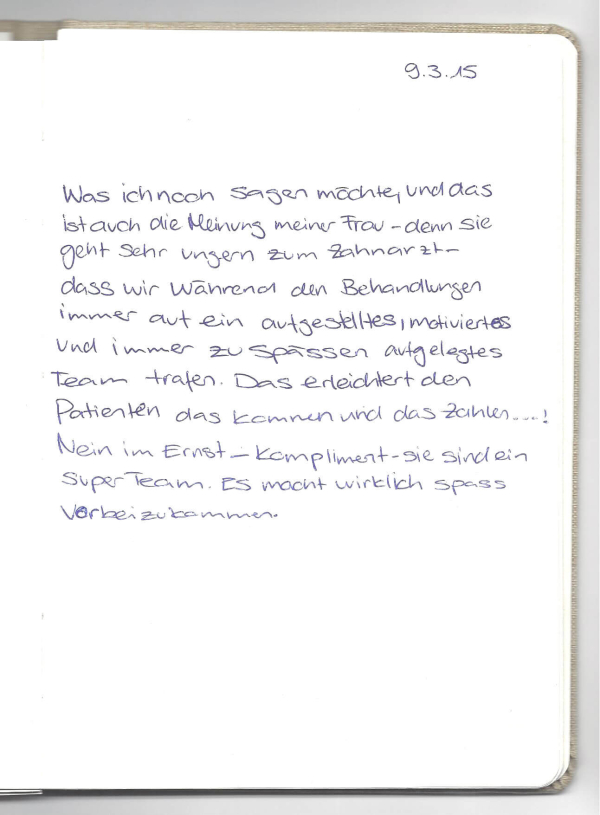 9.3.15
Was ich noch sagen möchte, und das
ist auch die Meinung meiner Frau - denn sie
geht sehr ungern zum Zahnarzt -
dass wir während den Behandlungen
immer auf ein aufgestelltes, motiviertes
und immer zu Spässen aufgelegtes
Team trafen. Das erleichtert den
Patienten das kommen und das Zahlen....!
Nein im Ernst - Kompliment - sie sind ein
Super Team. Es macht wirklich spass
vorbeizukommen.